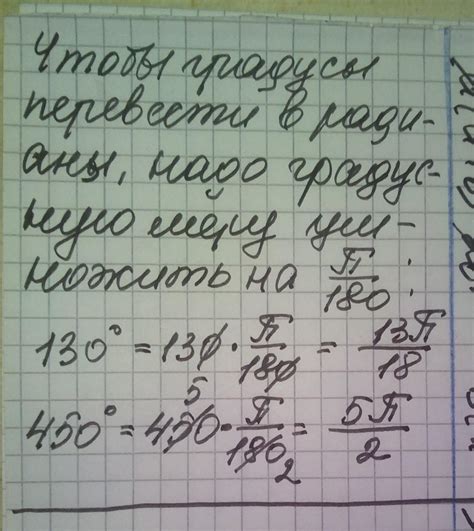 Чтобы градусы
перевести в ради-
аны, надо градус-
ную меру ум-
ножить на П/180 :
130° = 130 · П/180 = 13П/18
450° = 450 · П/180 = 5П/2
5
2